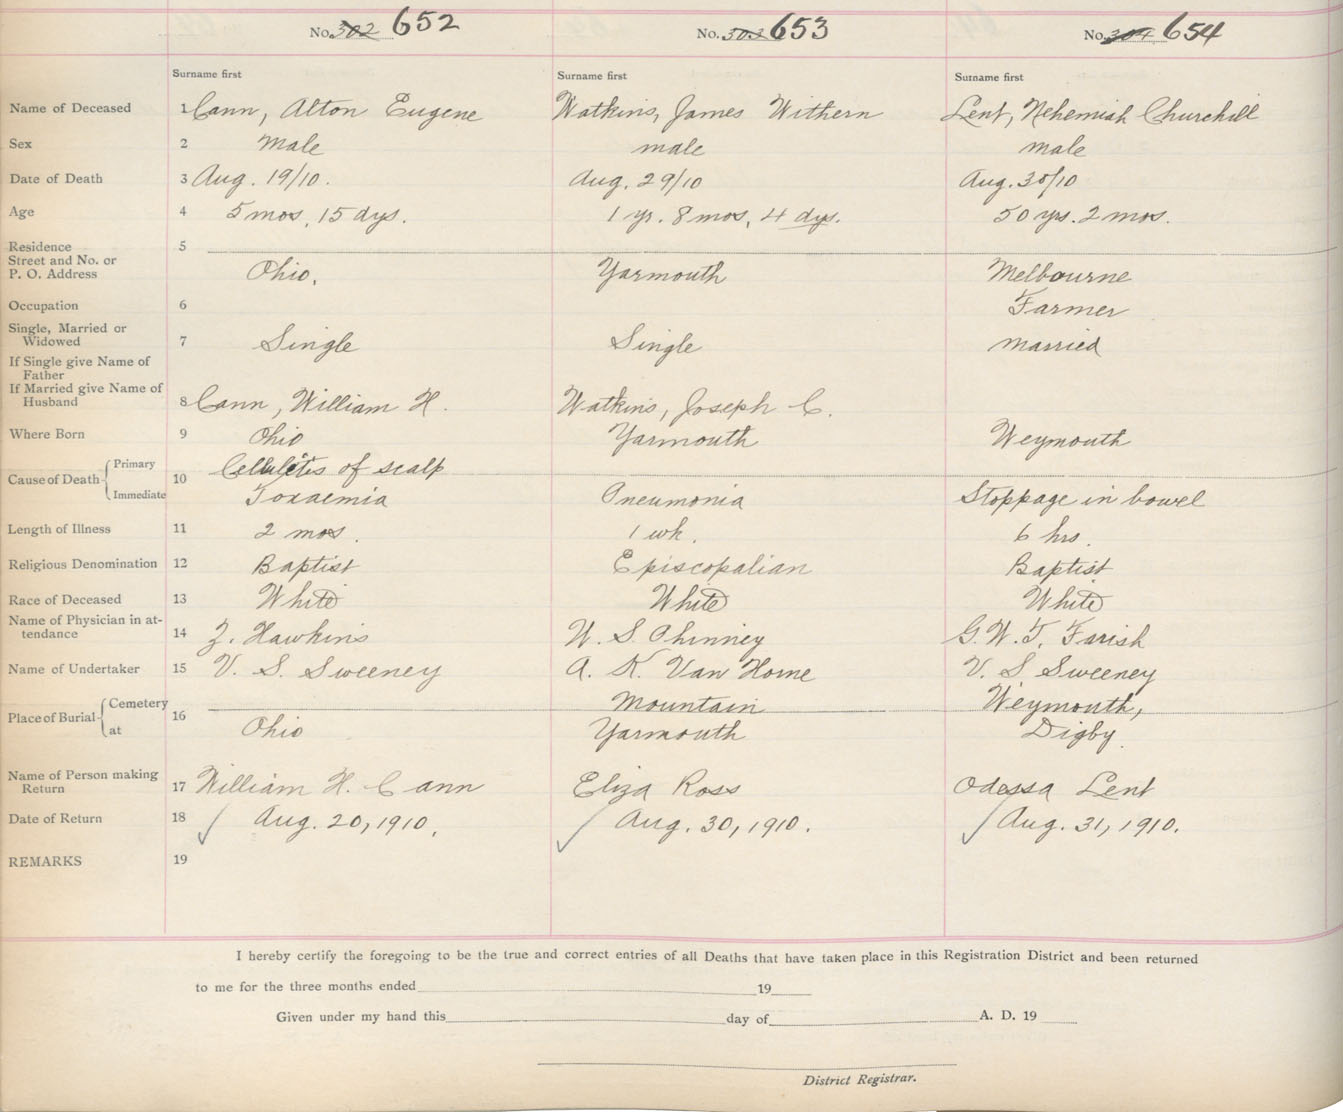 No. 302 652 No. 303 653 No. 304 654
Surname first Surname first Surname first
Name of Deceased 1 Cann, Alton Eugene Watkins, James Withern Lent, Nehemiah Churchill
Sex 2 Male male male
Date of Death 3 Aug. 19/10. Aug. 29/10 Aug. 30/10
Age 4 5 mos, 15 dys. 1 yr. 8 mos, 4 dys. 50 yrs. 2 mos.
Residence 5
Street and No. or
P. O. Address Ohio. Yarmouth Melbourne
Occupation 6 Farmer
Single, Married or
Widowed 7 Single Single married
If Single give Name of
Father
If Married give Name of
Husband 8 Cann, William H. Watkins, Joseph C.
Where Born 9 Ohio Yarmouth Weymouth
Cause of Death Primary 10 Cellulitis of scalp
Immediate Toxaemia Pneumonia Stoppage in bowel
Length of Illness 11 2 mos. 1 wk. 6 hrs.
Religious Denomination 12 Baptist Episcopalian Baptist
Race of Deceased 13 White White White
Name of Physician in at-
tendance 14 Z. Hawkins W. S. Phinney G. W. T. Farish
Name of Undertaker 15 V. S. Sweeney A. K. Van Horne V. S Sweeney
Place of Burial Cemetery 16 Mountain Weymouth,
at Ohio Yarmouth Digby.
Name of Person making
Return 17 William H. Cann Eliza Ross Odessa Lent
Date of Return 18 Aug. 20, 1910, Aug. 30, 1910. Aug. 31, 1910.
REMARKS 19
I hereby certify the foregoing to be the true and correct entries of all Deaths that have taken place in this Registration District and been returned
to me for the three months ended 19
Given under my hand this day of A. D. 19
District Registrar.